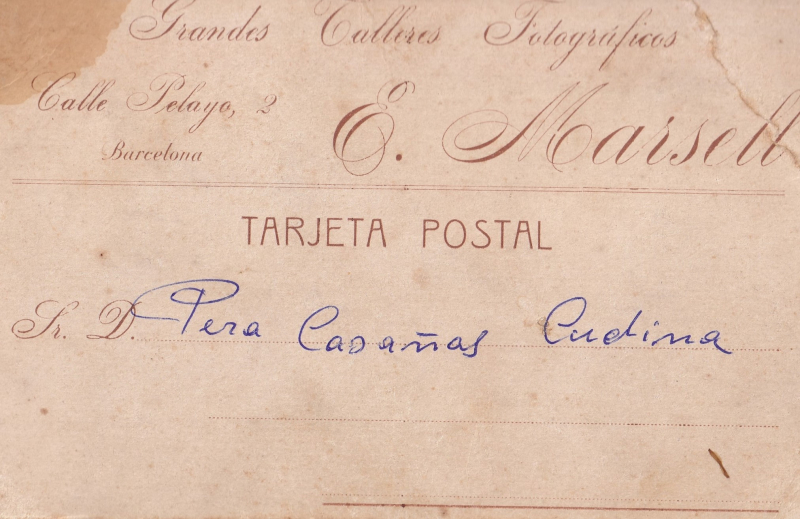 Grandes Talleres Fotográficos
Calle Pelayo, 2
Barcelona
E. Marsell
TARJETA POSTAL
Sr. D. Pera Casañas Cudina